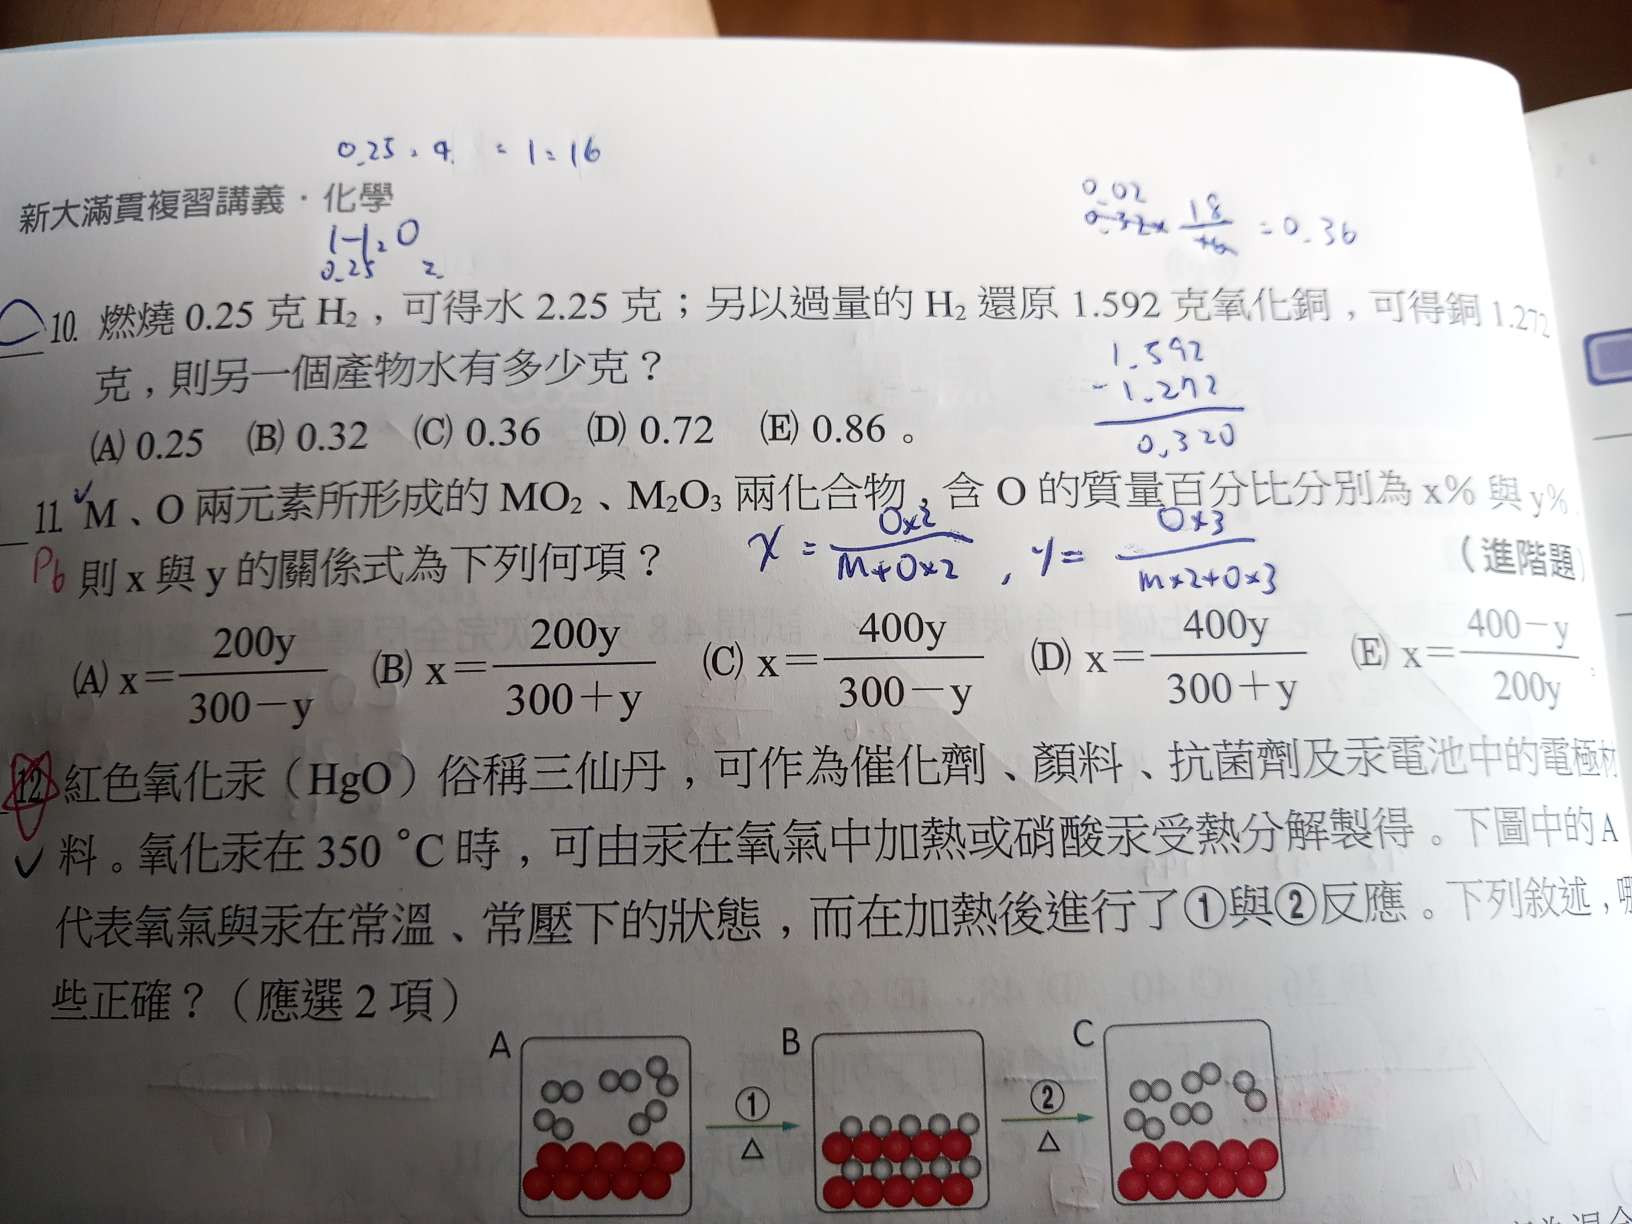 0.25 : 4 = 1 : 16
新大滿貫複習講義·化學
H₂ O
0.25 2
0.02
0.32 × 18/16 = 0.36
10. 燃燒 0.25 克 H₂，可得水 2.25 克；另以過量的 H₂ 還原 1.592 克氧化銅，可得銅 1.272
克，則另一個產物水有多少克？
1.592
- 1.272
0.320
(A) 0.25 (B) 0.32 (C) 0.36 (D) 0.72 (E) 0.86。
11. M、O 兩元素所形成的 MO₂、M₂O₃ 兩化合物，含 O 的質量百分比分別為 x% 與 y%
P6 則 x 與 y 的關係式為下列何項？ （進階題）
x = O×2/M+O×2 , y = O×3/M×2+O×3
(A) x=200y/300－y (B) x=200y/300＋y (C) x=400y/300－y (D) x=400y/300＋y (E) x=400－y/200y
12. 紅色氧化汞（HgO）俗稱三仙丹，可作為催化劑、顏料、抗菌劑及汞電池中的電極材
料。氧化汞在 350 °C 時，可由汞在氧氣中加熱或硝酸汞受熱分解製得。下圖中的 A
代表氧氣與汞在常溫、常壓下的狀態，而在加熱後進行了①與②反應。下列敘述，哪
些正確？（應選 2 項）
A B C
① ②
△ △